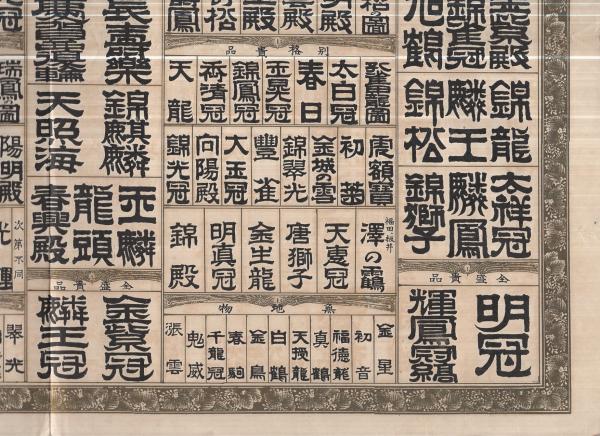 金紫殿
旭鶴
錦龍
麟王
錦松
太祥冠
麟鳳
錦獅子
全盛貴品
明冠
別格貴品
太白冠
春日
玉晃冠
錦鳳冠
香清冠
天龍
初菊
金城の雪
錦翠光
豐雀
大玉冠
向陽殿
錦光冠
澤の鶴
唐獅子
金生龍
明真冠
錦殿
無地物
金星
初音
福德龍
真鶴
天授龍
白鶴
金鳥
春駒
千龍冠
鬼威
張雲
長壽樂
錦麒麟
天照海
玉麟
龍頭
春興殿
全盛貴品
金紫冠
麟王冠
瑞鳳圖
陽明殿
次第不同
翠光